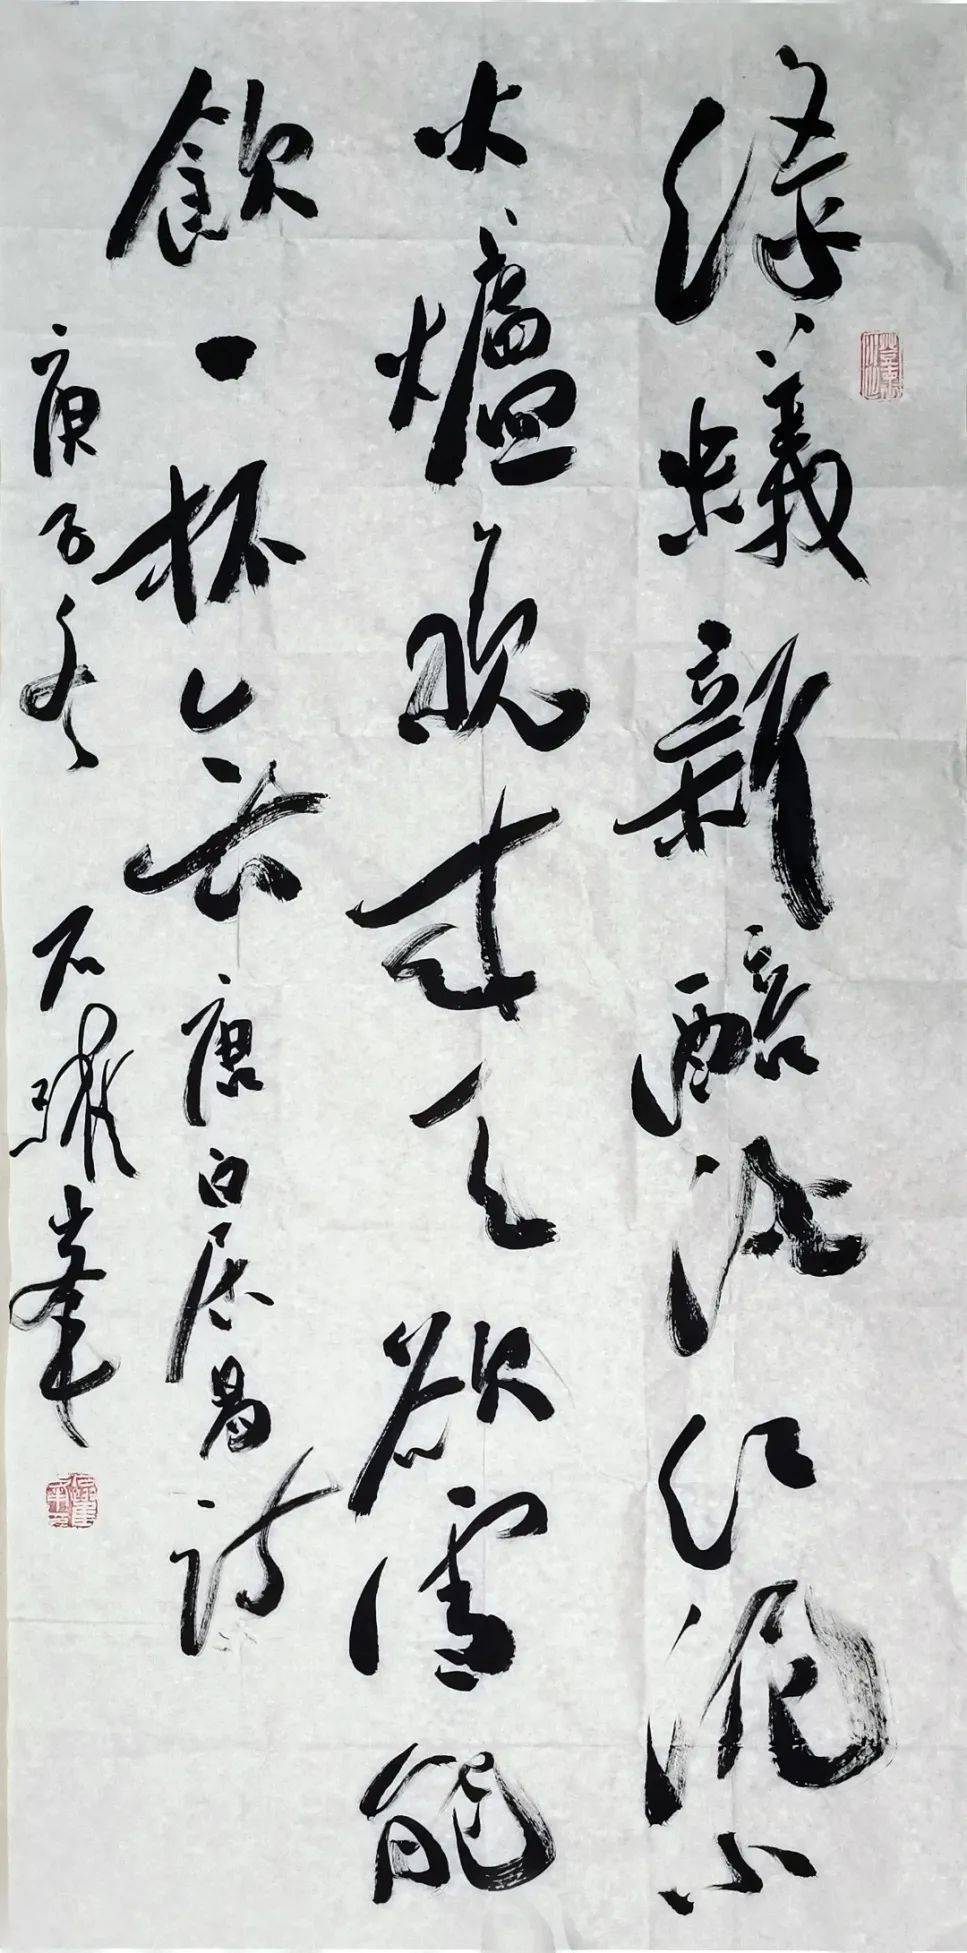 綠蟻新醅酒紅泥小
火爐晚來天欲雪能
飲一杯無 唐白居易詩
庚子冬 石 峯